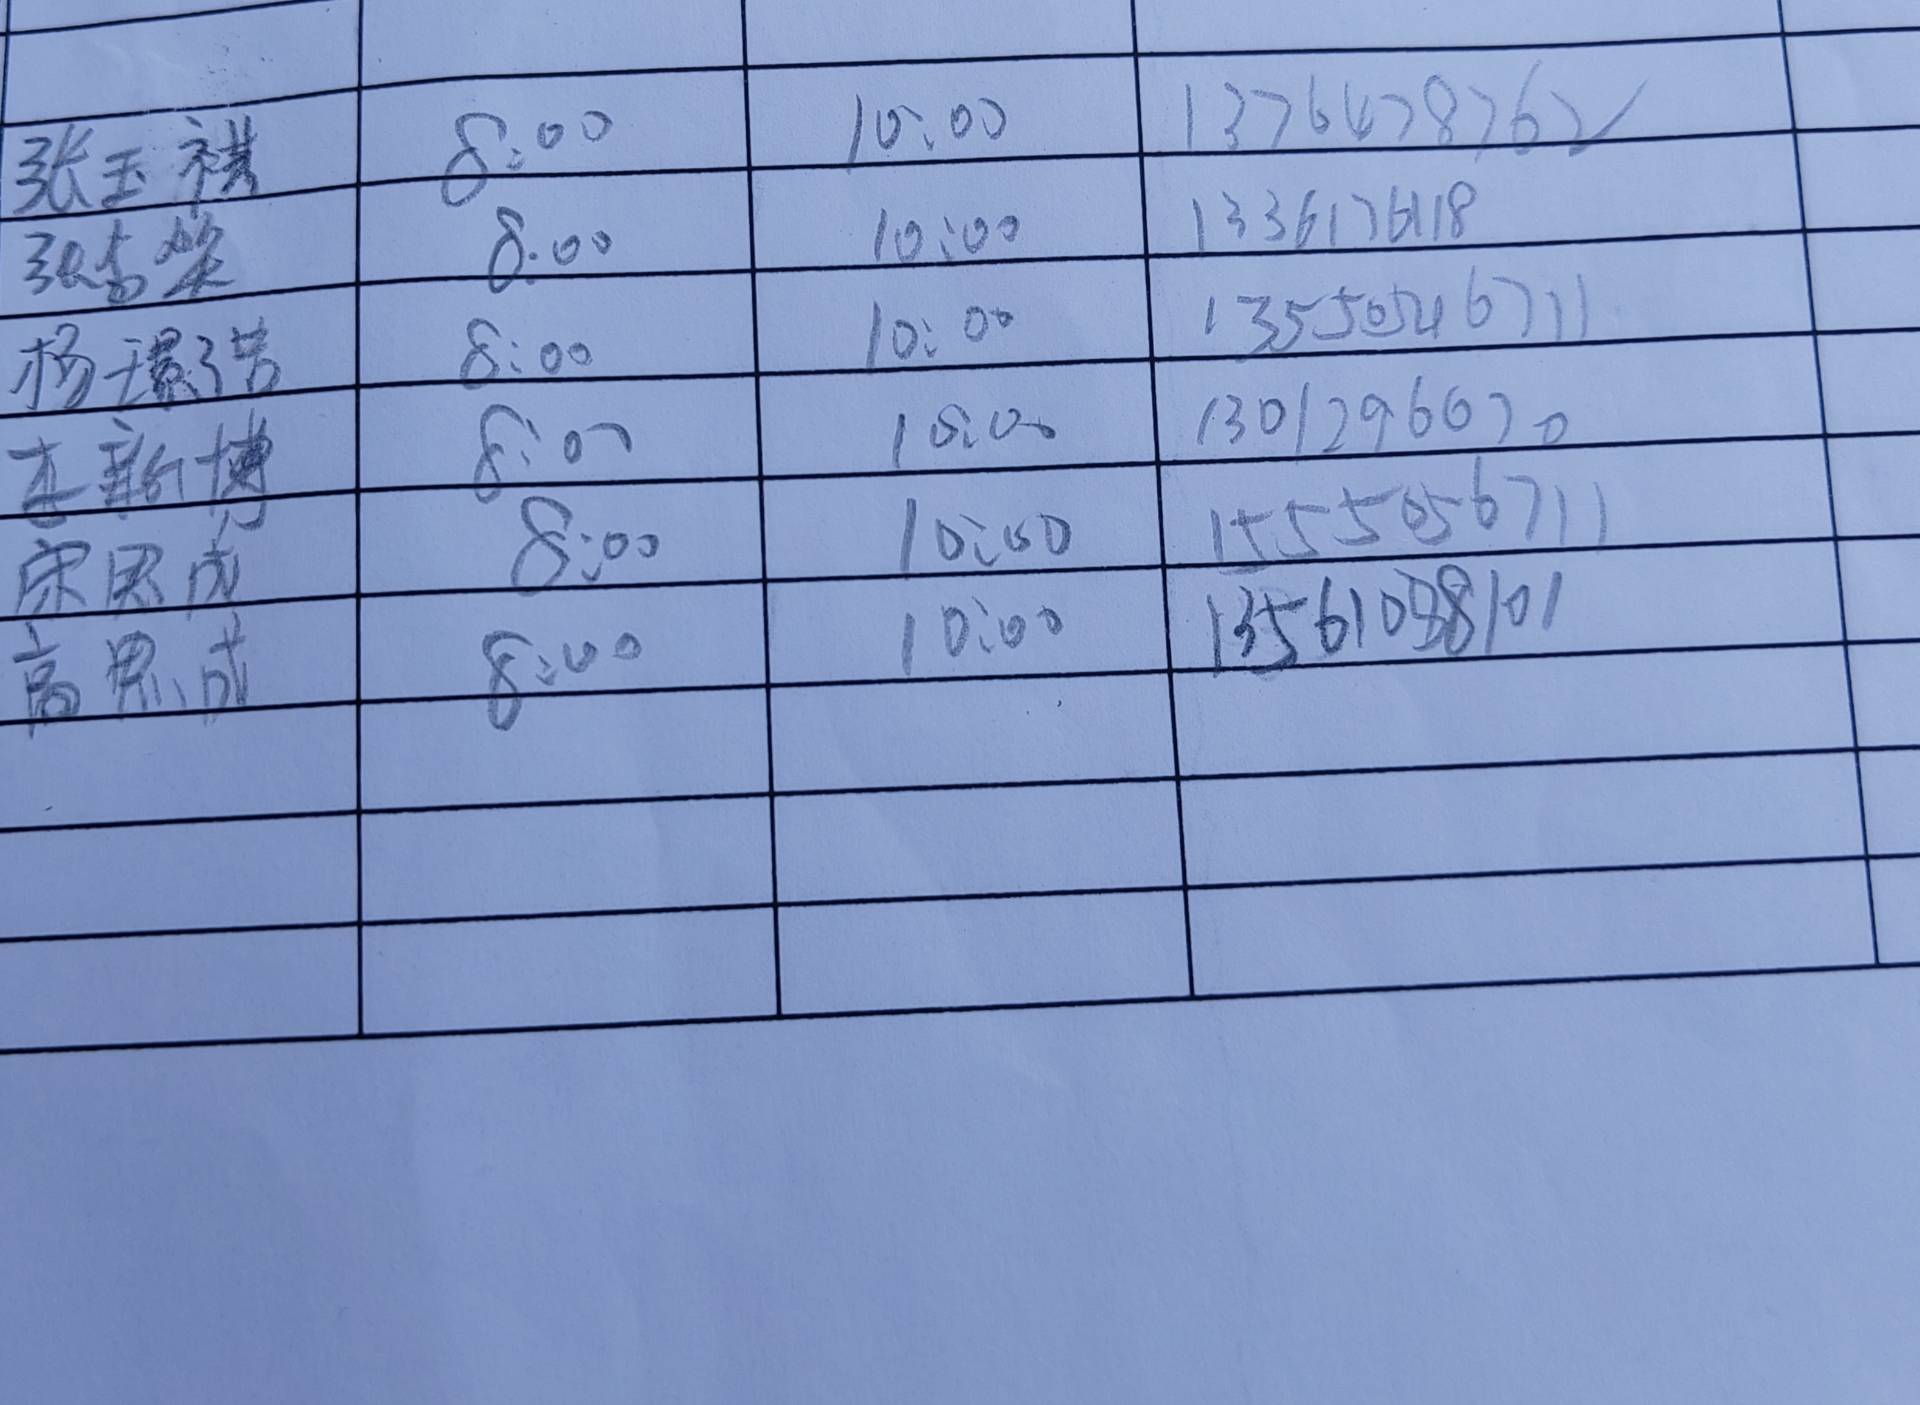 张玉祺 8:00 10:00 1376478762
8:00 10:00 13361376118
杨璟诺 8:00 10:00 13550546711
李新博 8:00 10:00 13012966070
宋恩成 8:00 10:00 1555056711
高思成 8:00 10:00 13561038101